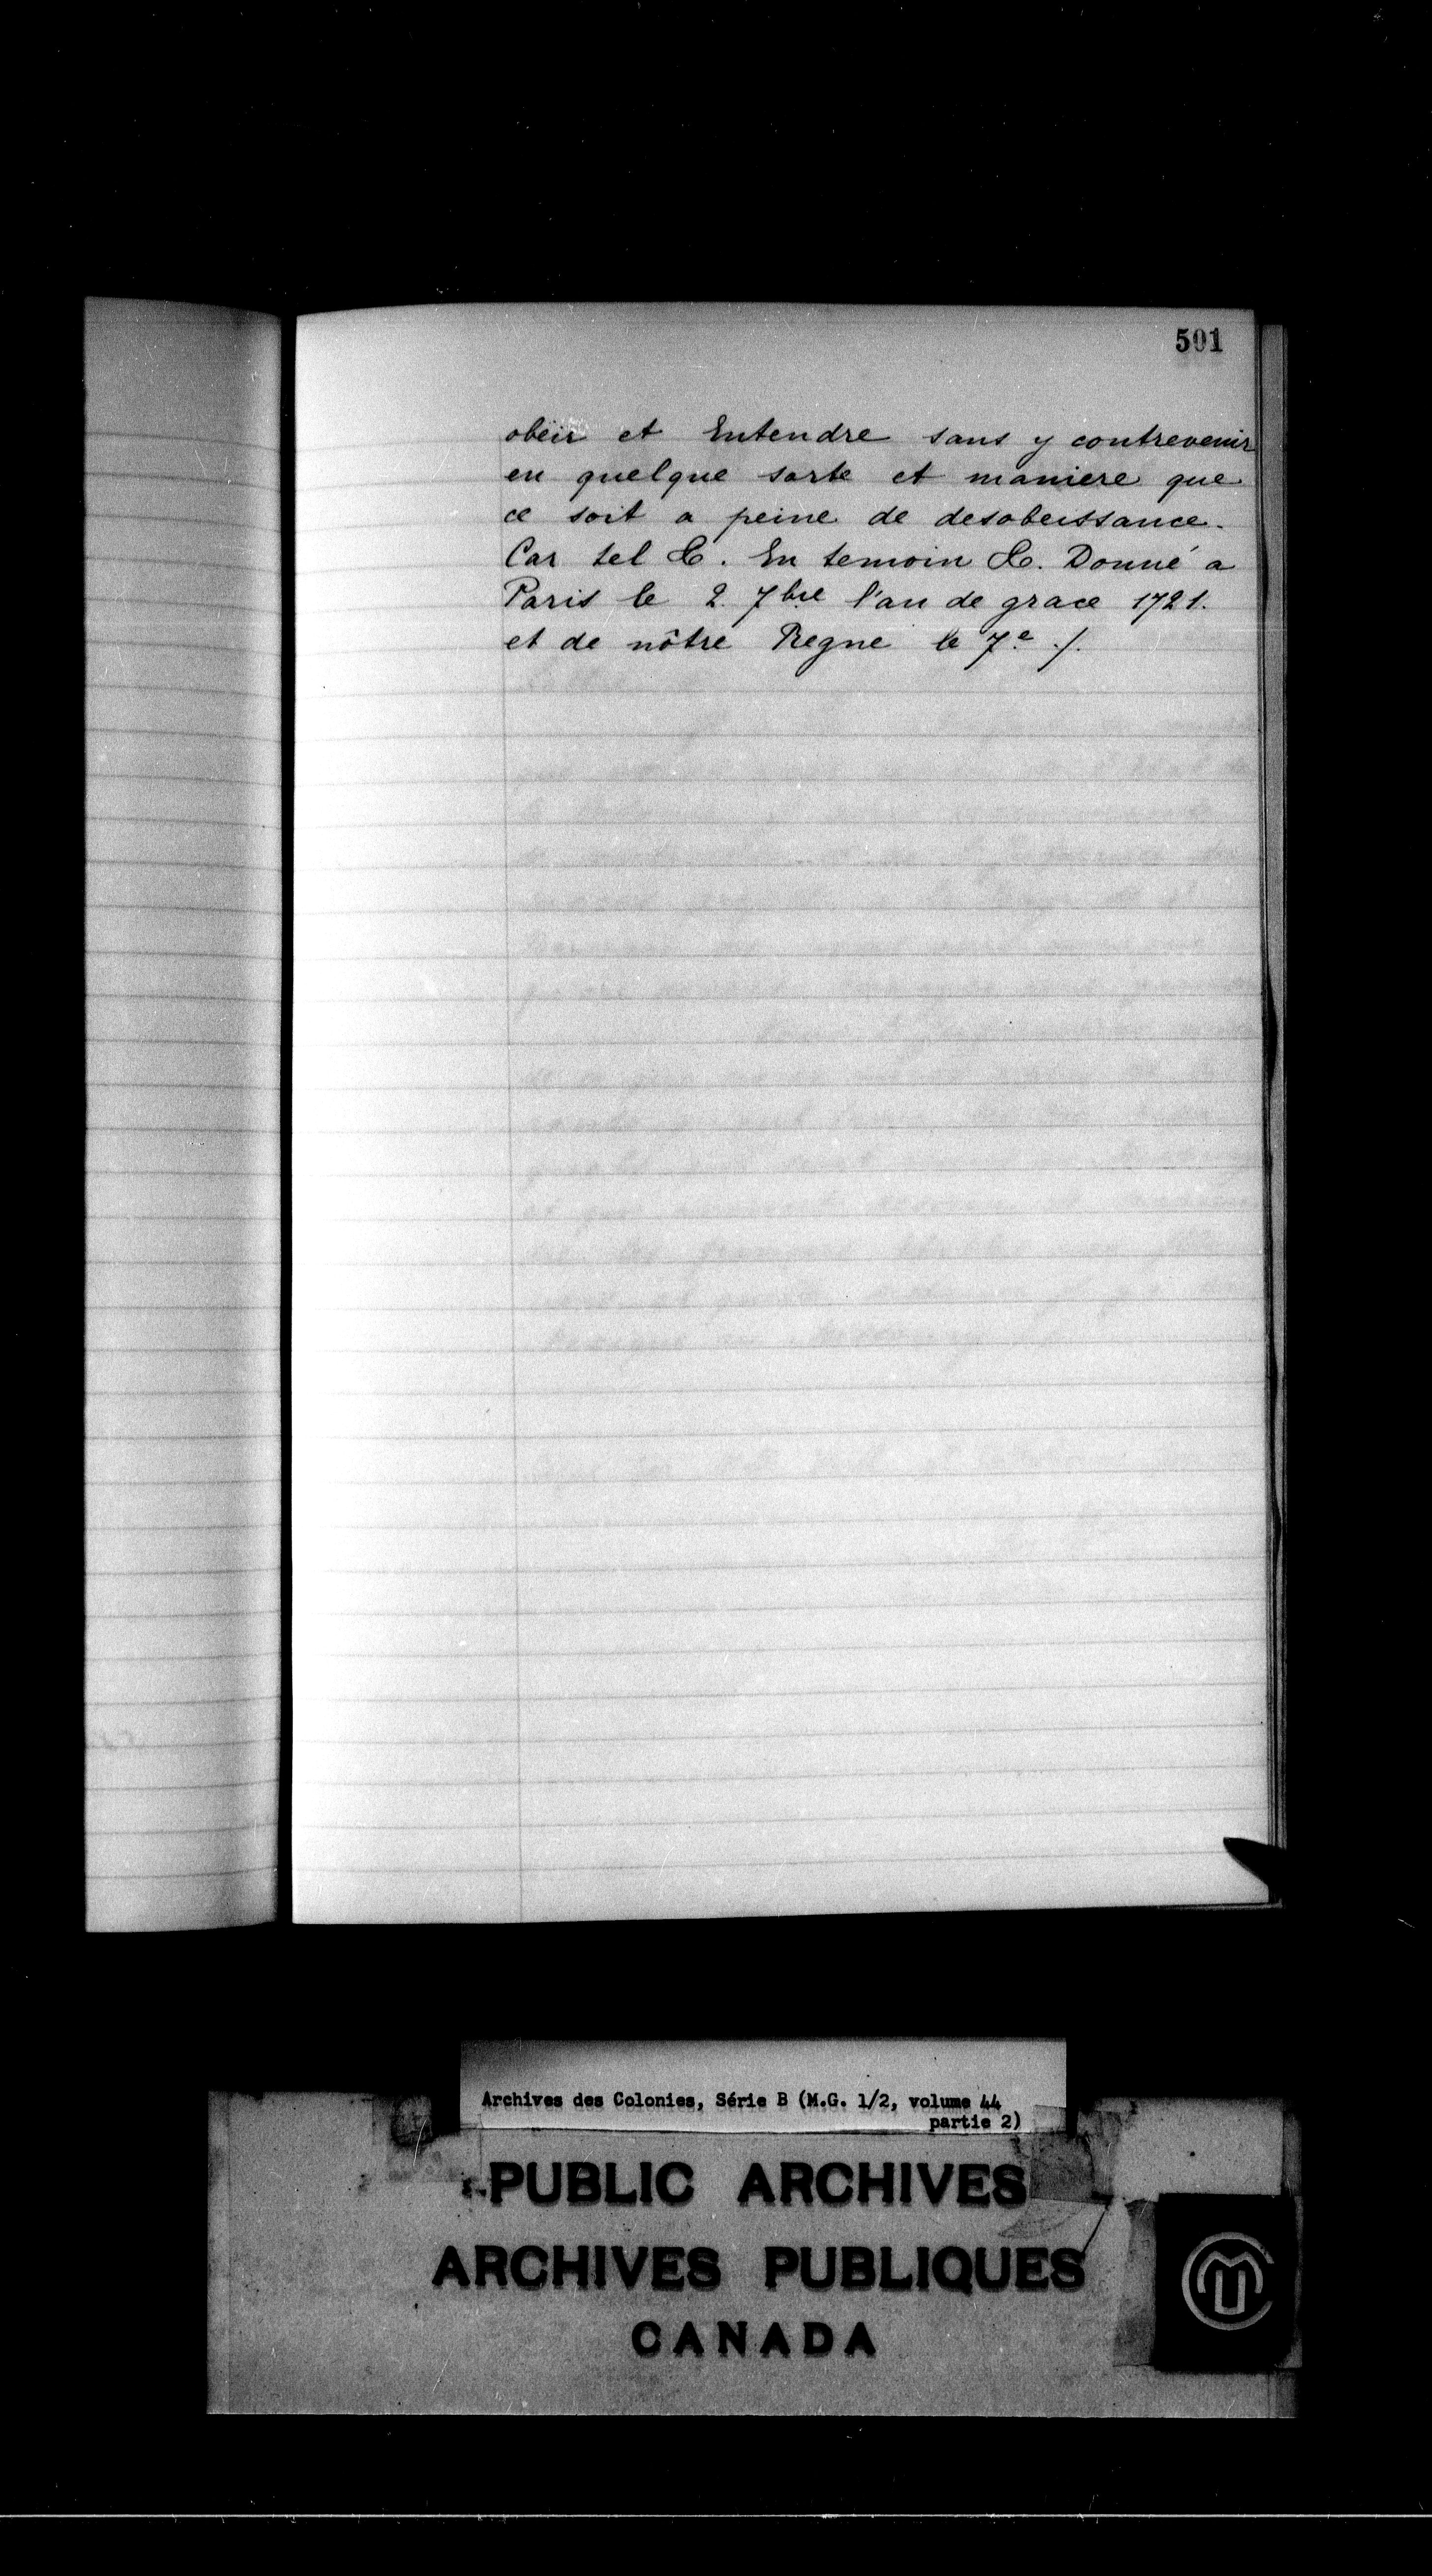 501
obëir et Entendre sans y contrevenir
en quelque sorte et maniere que
ce soit a peine de desobeissance.
Car tel &c. En temoin &c. Donné a
Paris le 2. 7bre l'an de grace 1721.
et de nôtre Regne le 7e ./.
Archives des Colonies, Série B (M.G. 1/2, volume 44
partie 2)
PUBLIC ARCHIVES
ARCHIVES PUBLIQUES
CANADA